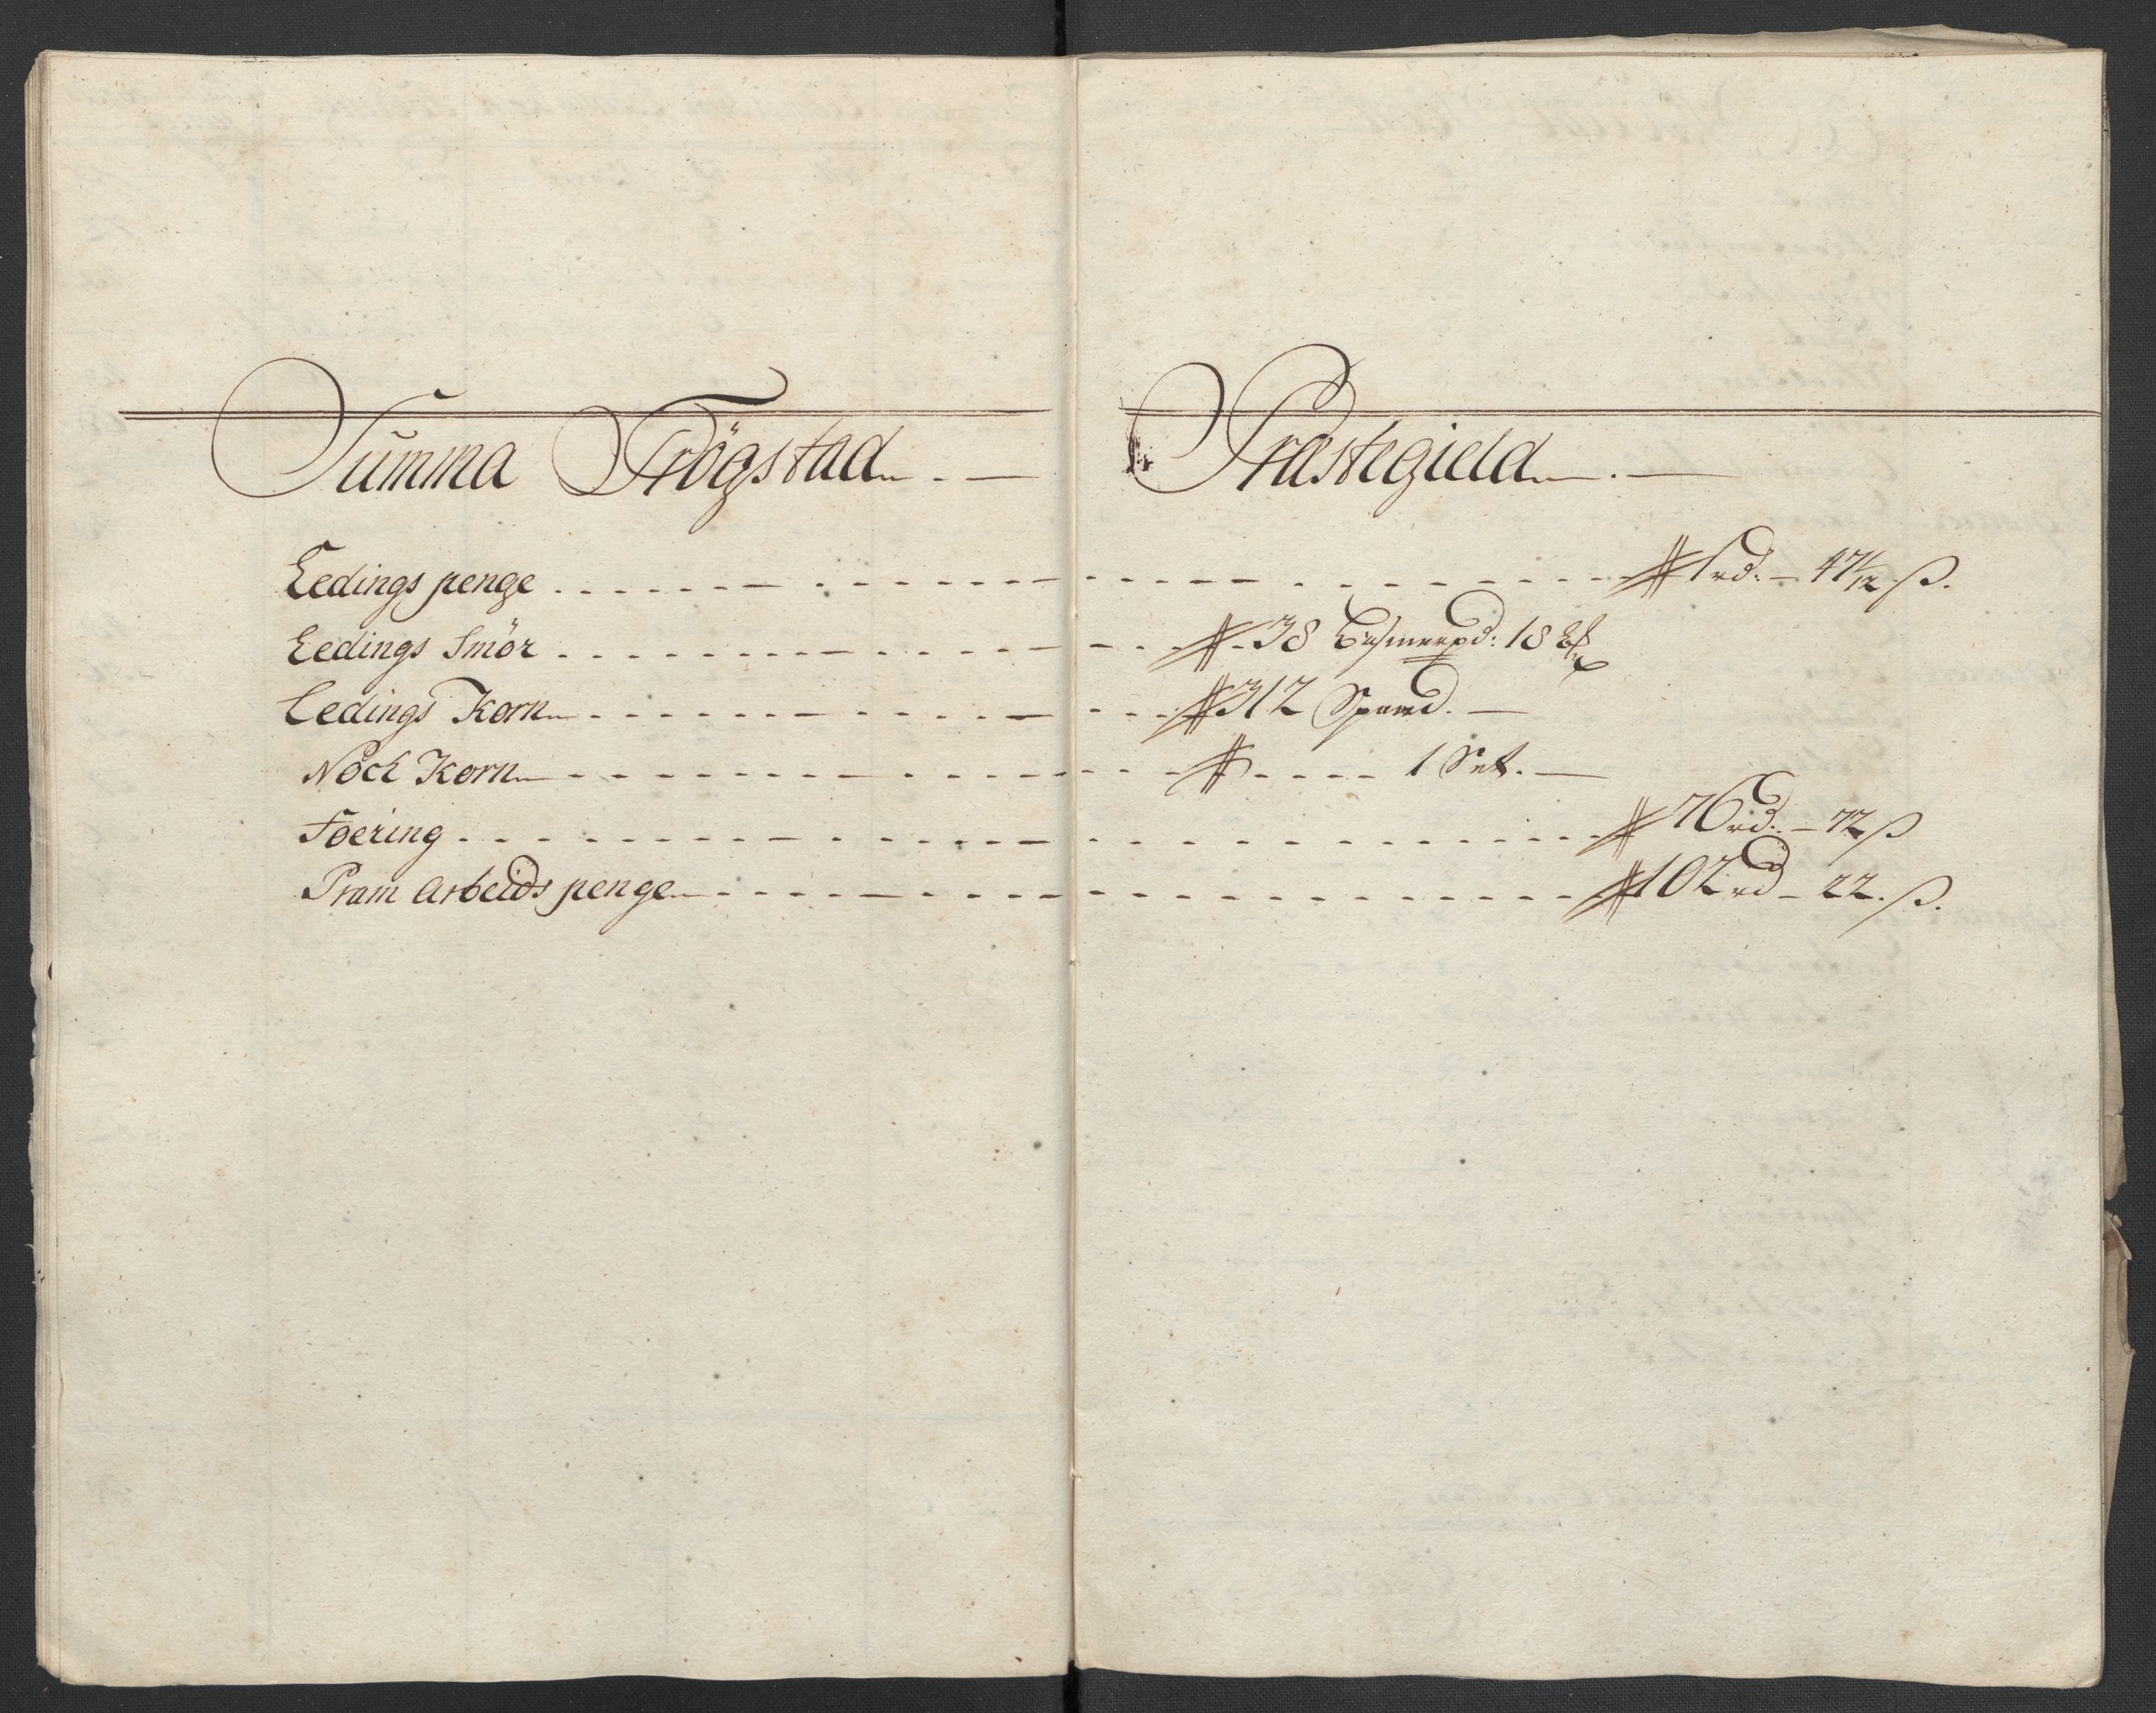 Summa Trögstad Præstegield
Ledings penge # 1 rd. - 47 1/12 ß.
Ledings Smör # 38 Bismerpd: 18 
Ledings Korn # 312 Spand.
Noch Korn # 1 Set.
Foering # 76 rd. - 72 ß
Pram Arbeids penge # 102 rd - 22. ß.